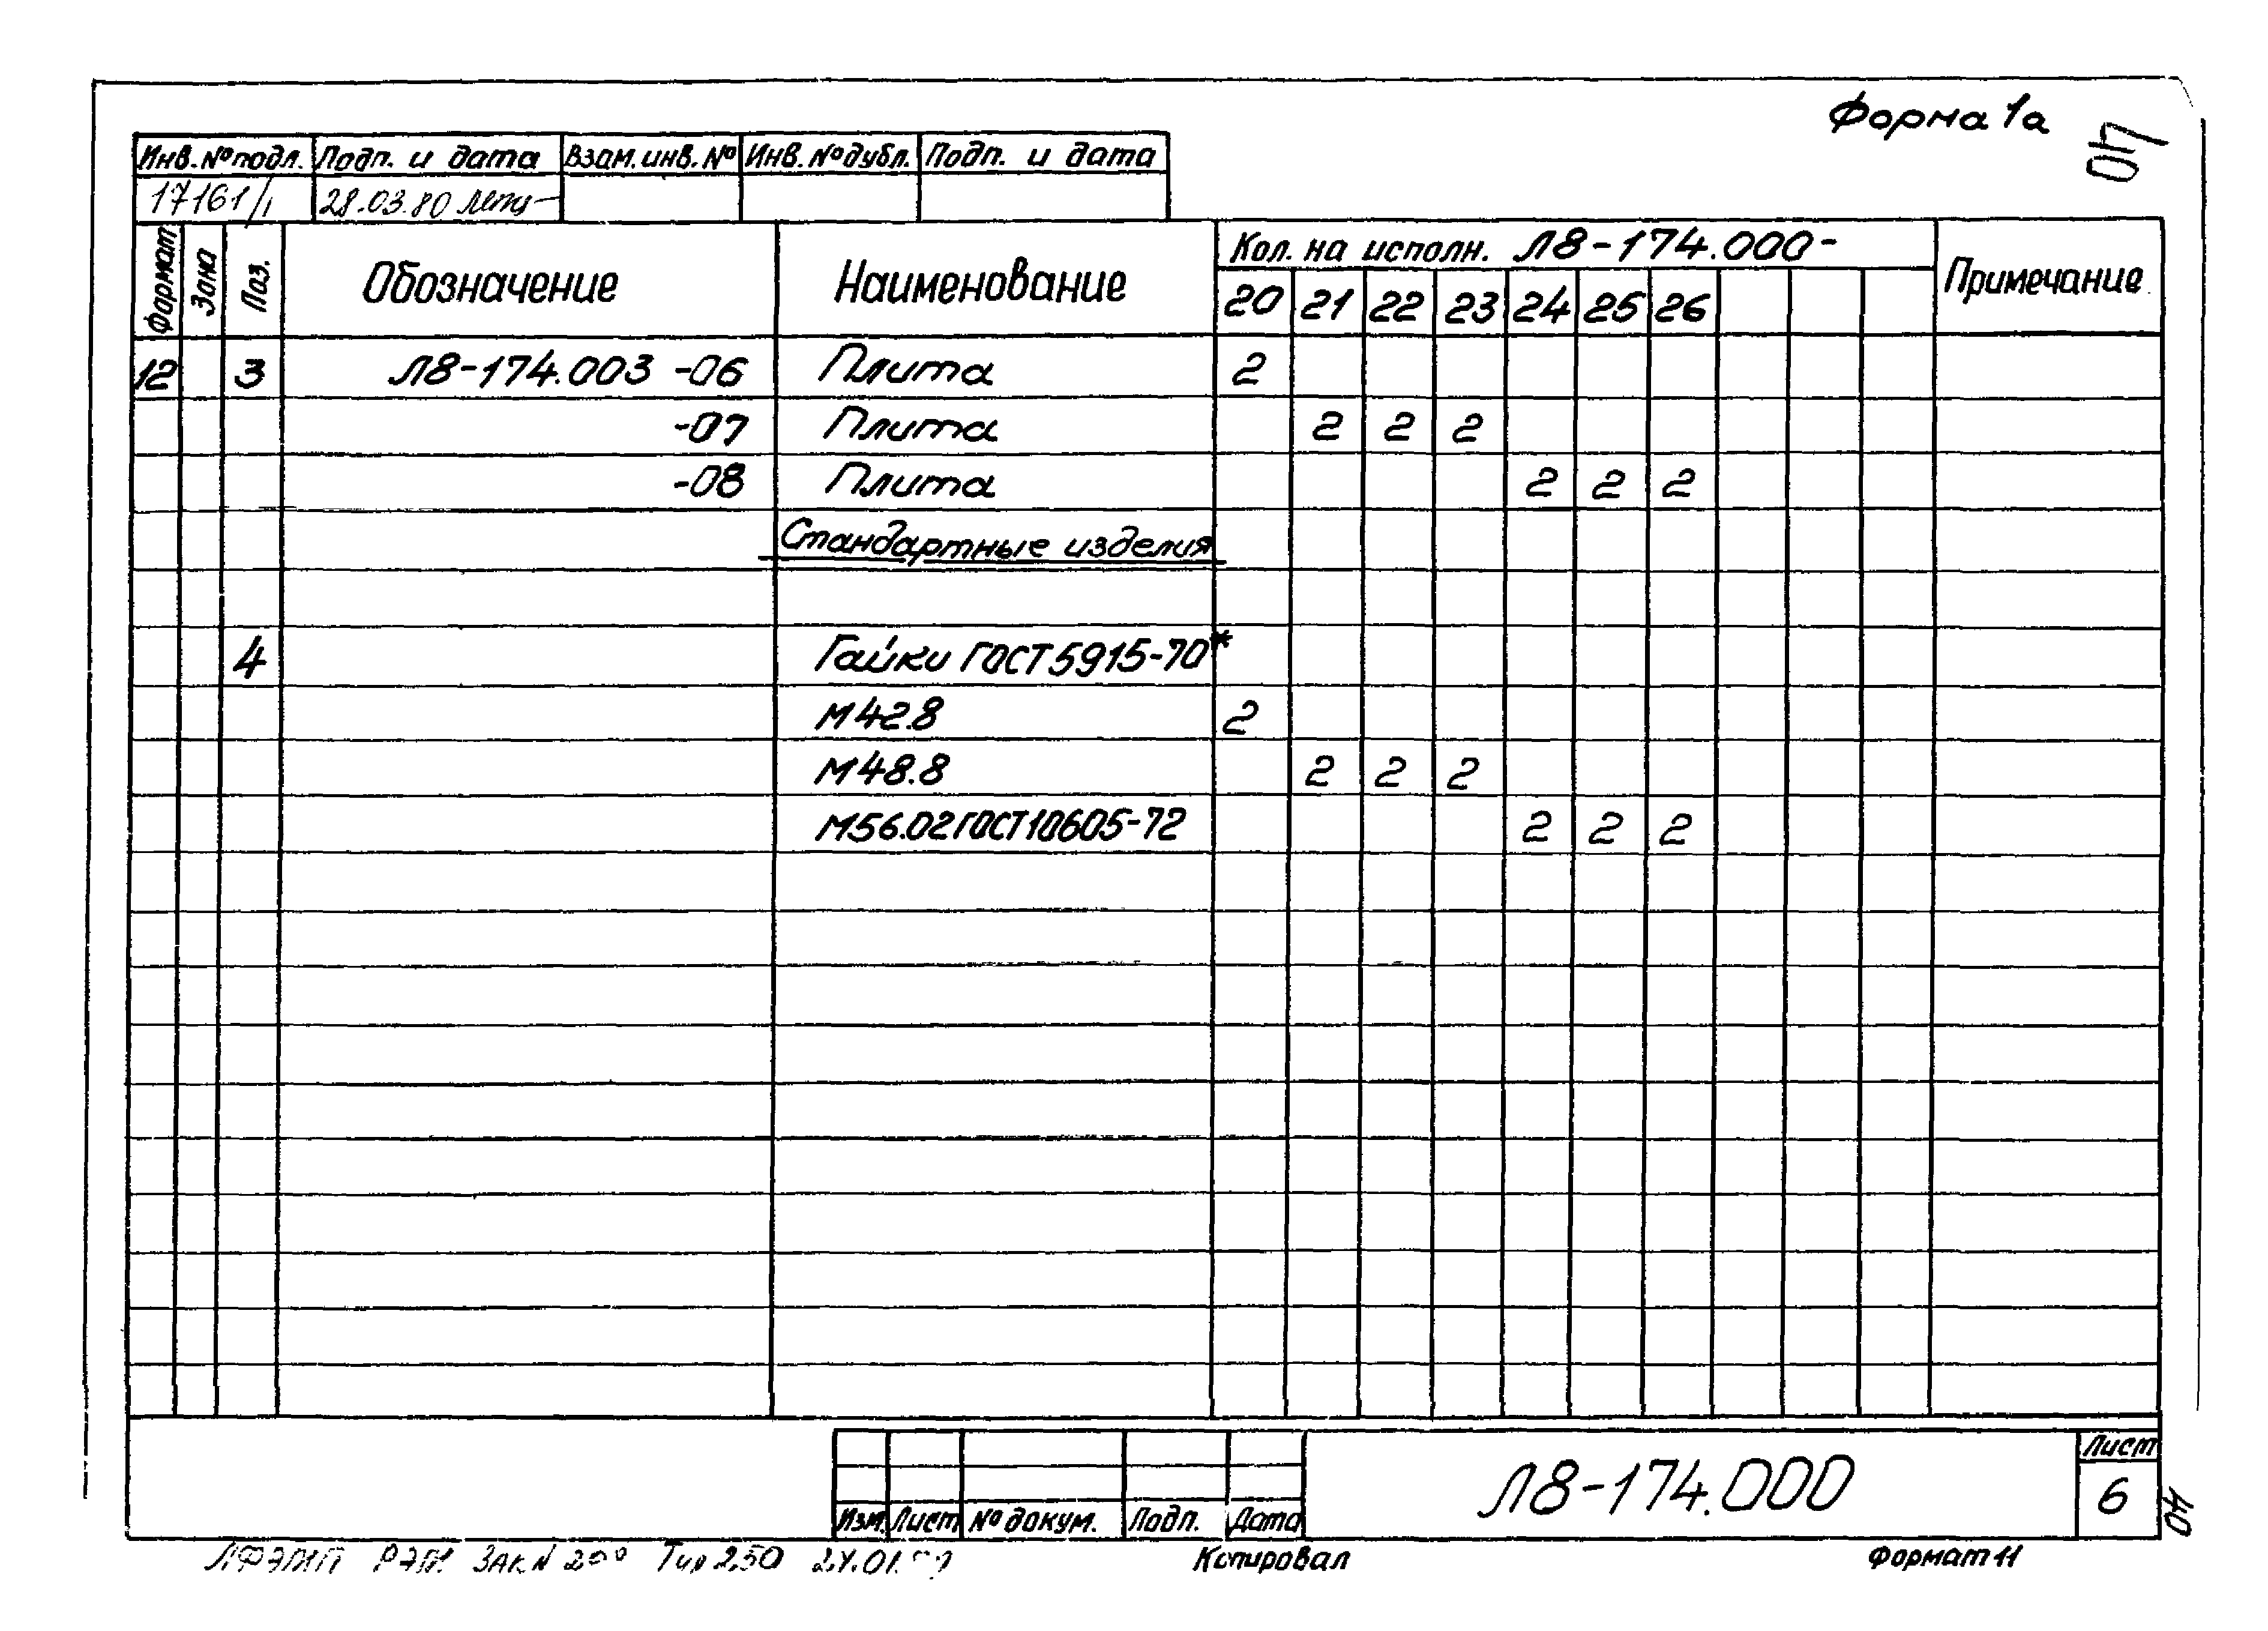 Форма 1а
40
Инв.№подл. Подп. и дата Взам.инв.№ Инв.№дубл. Подп. и дата
17161/1 28.03.80
Формат Зона Поз. Обозначение Наименование Кол. на исполн. Л8-174.000- Примечание
20 21 22 23 24 25 26
12 3 Л8-174.003 -06 Плита 2
-07 Плита 2 2 2
-08 Плита 2 2 2
Стандартные изделия
4 Гайки ГОСТ 5915-70*
М42.8 2
М48.8 2 2 2
М56.02 ГОСТ 10605-72 2 2 2
Изм. Лист № докум. Подп. Дата
Л8-174.000
Лист
6
40
Зак N Тир 250
Копировал
Формат 11